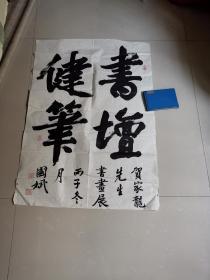 書壇
健筆
賀家龍
先生
書畫展
丙子冬
月
國斌